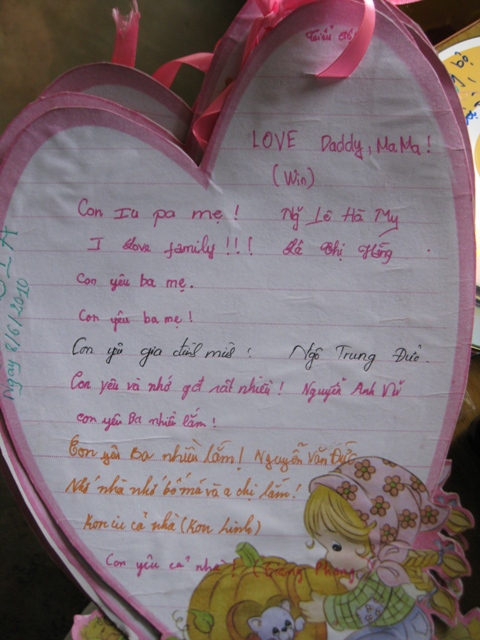 LOVE Daddy, MaMa!
(Win)
Con Iu pa mẹ! Ng Lê Hà My
I love family!!! Lê Thị Hồng
Con yêu ba mẹ.
Con yêu ba mẹ!
Con yêu gia đình mình! Ngô Trung Đức.
Con yêu và nhớ gđ rất nhiều! Nguyễn Anh
con yêu Ba nhiều lắm!
Con yêu Ba nhiều lắm! Nguyễn Văn Đức
Nhớ nhà nhớ bố má và a chị lắm!
Kon iu cả nhà (Kon Linh)
Con yêu cả nhà
Ngày 8/6/2010